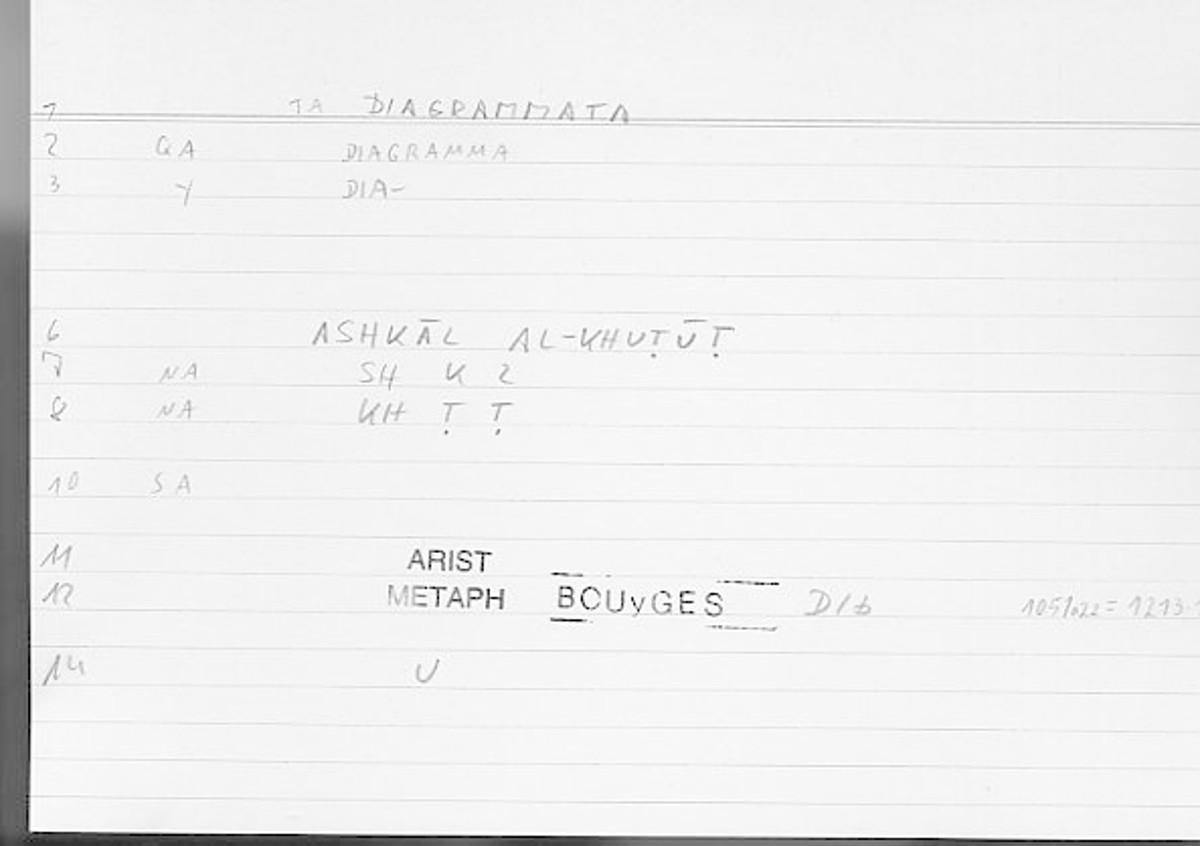 1 TA DIAGRAMMATA
2 QA DIAGRAMMA
3 Y DIA-
6 ASHKĀL AL-KHUṬŪṬ
7 NA SH K 2
8 NA KH Ṭ Ṭ
10 SA
11 ARIST
12 METAPH BOUyGES D/b 1051a22 = 1213
14 U